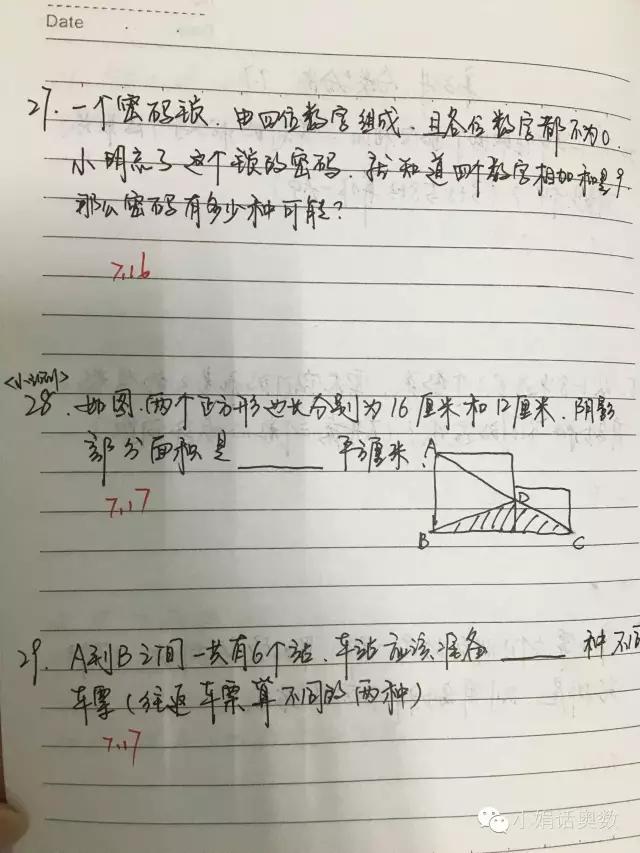 Date
27. 一个密码锁. 由四位数字组成. 且各位数字都不为0.
小明忘了这个锁的密码. 就知道四个数字相加和是9.
那么密码有多少种可能?
7.16
28. 如图.两个正方形边长分别为16厘米和12厘米. 阴影
部分面积是______平方厘米.
A
D
B
C
7.17
29. A到B之间一共有6个站. 车站应该准备______种不同
车票(往返车票算不同的两种)
7.17
小娟话奥数